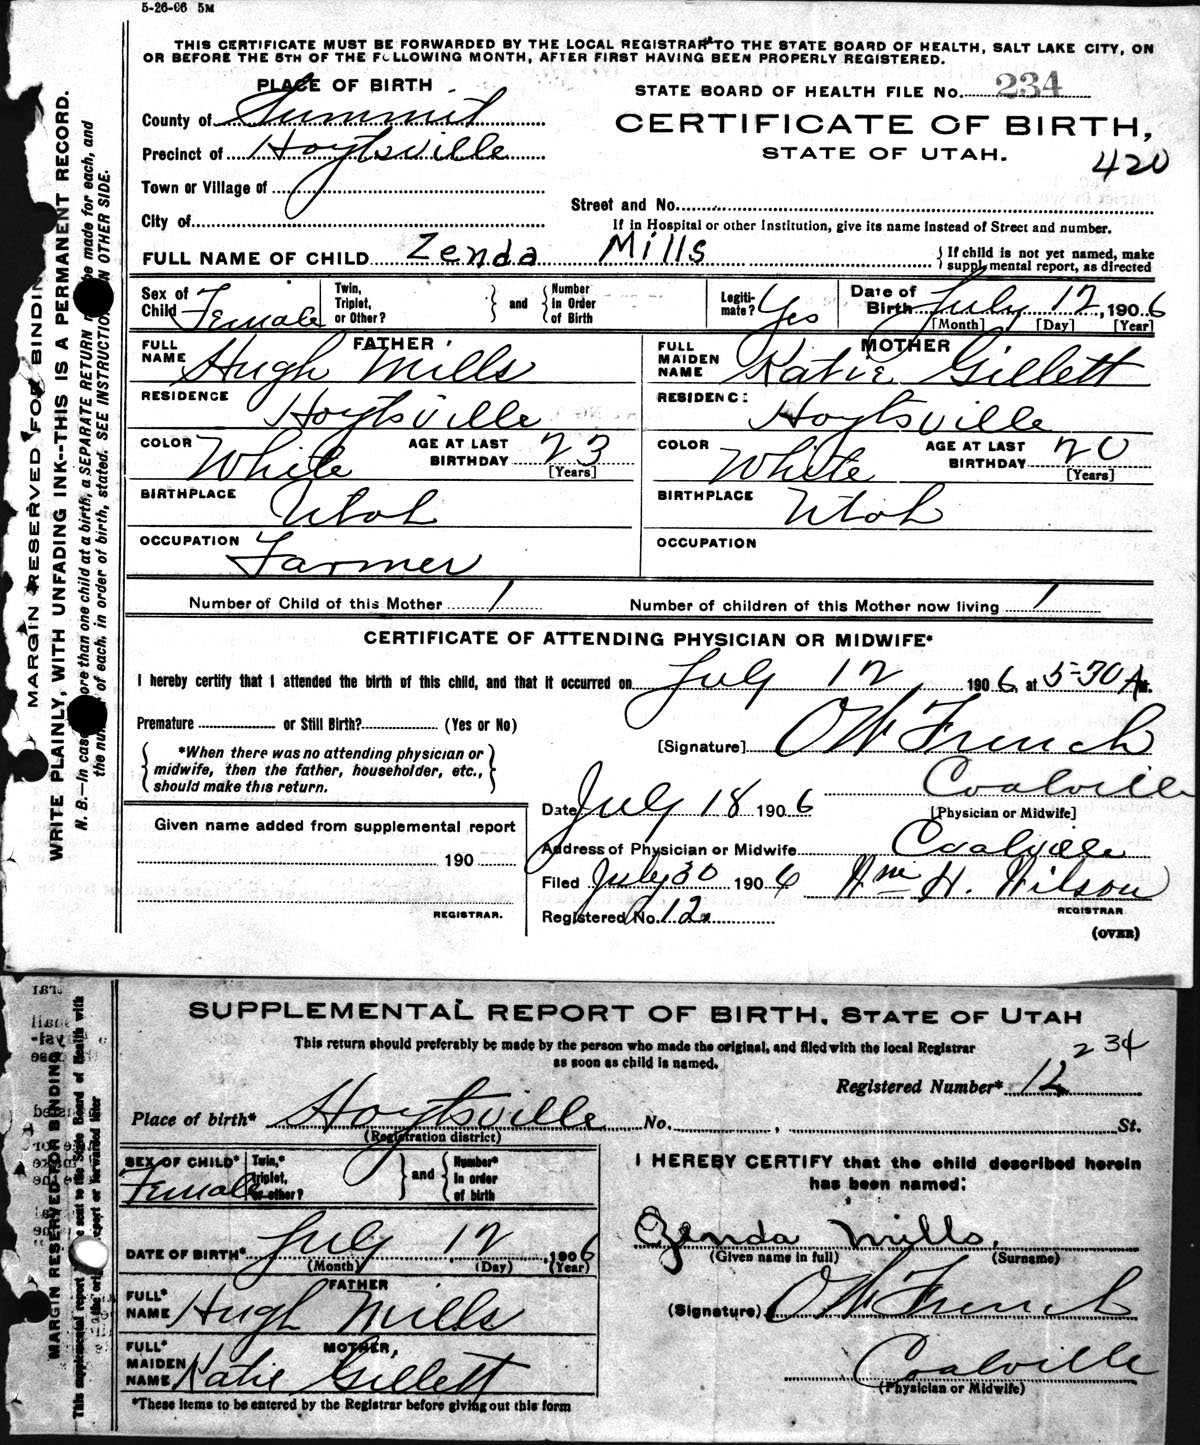 5-26-06 5M
THIS CERTIFICATE MUST BE FORWARDED BY THE LOCAL REGISTRAR TO THE STATE BOARD OF HEALTH, SALT LAKE CITY, ON
OR BEFORE THE 5TH OF THE FOLLOWING MONTH, AFTER FIRST HAVING BEEN PROPERLY REGISTERED.
PLACE OF BIRTH
STATE BOARD OF HEALTH FILE No. 234
County of Summit
CERTIFICATE OF BIRTH,
Precinct of Hoytsville
STATE OF UTAH.
420
Town or Village of
Street and No.
City of
If in Hospital or other Institution, give its name instead of Street and number.
FULL NAME OF CHILD Zenda Mills
If child is not yet named, make supplmental report, as directed
Sex of Child Female
Twin, Triplet, or Other?
and
Number In Order of Birth
Legitimate? Yes
Date of Birth July 12, 1906
[Month] [Day] [Year]
FATHER
FULL NAME Hugh Mills
MOTHER
FULL MAIDEN NAME Katie Gillett
RESIDENCE Hoytsville
RESIDENCE Hoytsville
COLOR White AGE AT LAST BIRTHDAY 23 [Years]
COLOR White AGE AT LAST BIRTHDAY 20 [Years]
BIRTHPLACE Utah
BIRTHPLACE Utah
OCCUPATION Farmer
OCCUPATION
Number of Child of this Mother 1
Number of children of this Mother now living 1
CERTIFICATE OF ATTENDING PHYSICIAN OR MIDWIFE*
I hereby certify that I attended the birth of this child, and that it occurred on July 12 1906, at 5-30 A M.
Premature or Still Birth? (Yes or No)
[Signature] O W French
*When there was no attending physician or
midwife, then the father, householder, etc.,
should make this return.
Coalville
[Physician or Midwife]
Date July 18 1906
Given name added from supplemental report
190
REGISTRAR.
Address of Physician or Midwife Coalville
Filed July 30 1906 Wm H. Wilson
REGISTRAR
Registered No. 12.
(OVER)
MARGIN RESERVED FOR BINDING
WRITE PLAINLY, WITH UNFADING INK--THIS IS A PERMANENT RECORD.
N. B.—In case more than one child at a birth, a SEPARATE RETURN be made for each, and
the number of each, in order of birth, stated. SEE INSTRUCTIONS ON OTHER SIDE.
SUPPLEMENTAL REPORT OF BIRTH, STATE OF UTAH
This return should preferably be made by the person who made the original, and filed with the local Registrar
as soon as child is named.
234
Registered Number* 12
Place of birth* Hoytsville No. , St.
(Registration district)
SEX OF CHILD* Female
Twin,* triplet, or other?
and
Number* In order of birth
I HEREBY CERTIFY that the child described herein
has been named:
Zenda Mills.
(Given name in full) (Surname)
DATE OF BIRTH* July 12, 1906
(Month) (Day) (Year)
FATHER
FULL* NAME Hugh Mills
(Signature) O W French
MOTHER,
FULL* MAIDEN NAME Katie Gillett
Coalville
(Physician or Midwife)
*These items to be entered by the Registrar before giving out this form
MARGIN RESERVED FOR BINDING